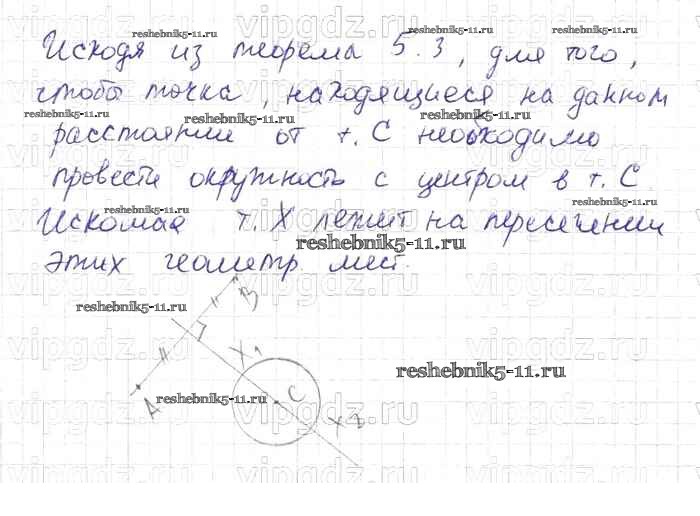 Исходя из теорема 5.3, для того,
чтобы точка, находящиеся на данном
расстоянии от т. С необходимо
провести окружность с центром в т. С
Искомая т. Х лежит на пересечении
этих геометр. мест.
B
X1
A
C
X2
reshebnik5-11.ru
reshebnik5-11.ru
reshebnik5-11.ru
reshebnik5-11.ru
reshebnik5-11.ru
reshebnik5-11.ru
reshebnik5-11.ru
reshebnik5-11.ru
reshebnik5-11.ru
vipgdz.ru